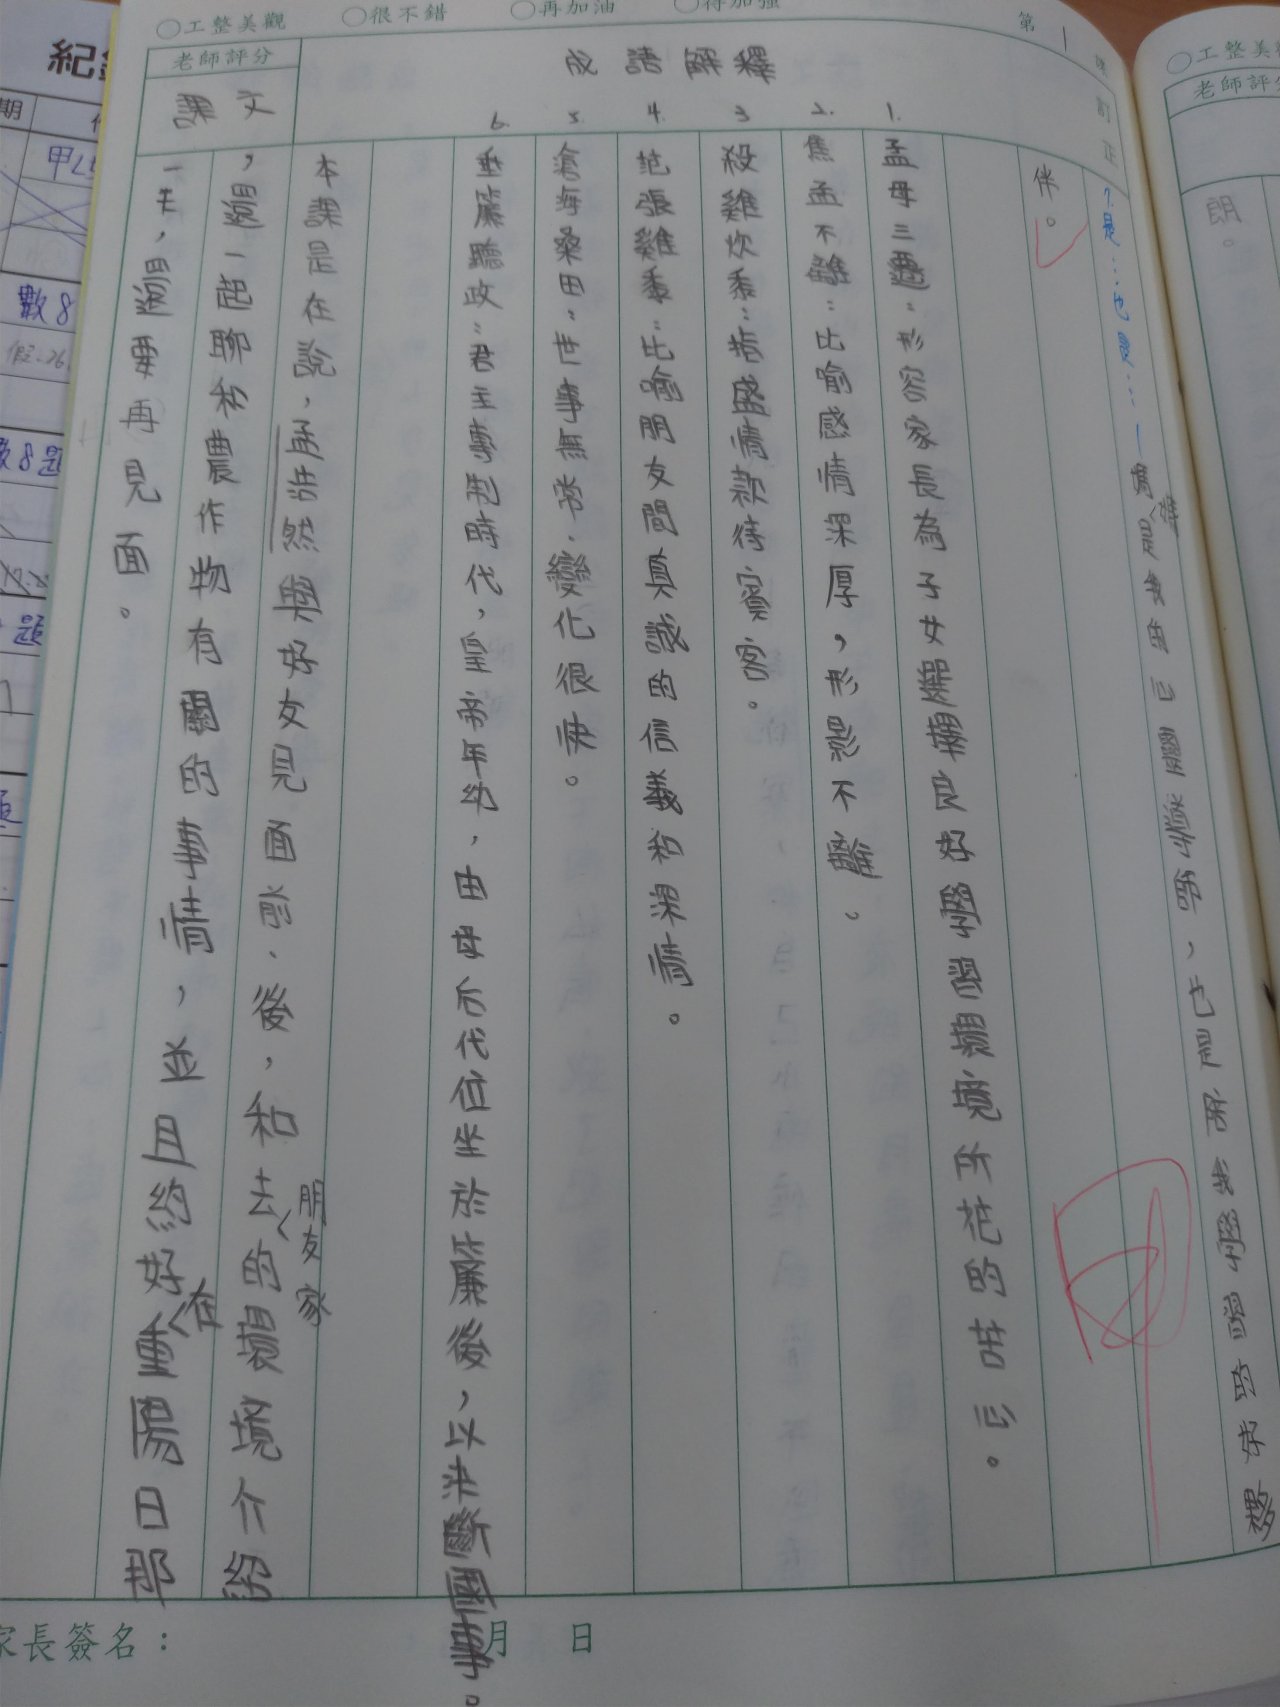 ◯工整美觀 ◯很不錯 ◯再加油 ◯待加強
第1課訂正
老師評分
成語解釋
課文
7.是…也是…－媽媽是我的心靈導師，也是陪我學習的好夥
伴。
甲
1.孟母三遷：形容家長為子女選擇良好學習環境所花的苦心。
2.焦孟不離：比喻感情深厚，形影不離。
3.殺雞炊黍：指盛情款待賓客。
4.范張雞黍：比喻朋友間真誠的信義和深情。
5.滄海桑田：世事無常、變化很快。
6.垂簾聽政：君主專制時代，皇帝年幼，由母后代位坐於簾後，以決斷國事。
本課是在說，孟浩然與好友見面前、後，和去朋友家的環境介紹
，還一起聊和農作物有關的事情，並且約好在重陽日那
一天，還要再見面。
家長簽名： 月 日
◯工整美
老師評分
朗。
紀
期
甲
數8
題